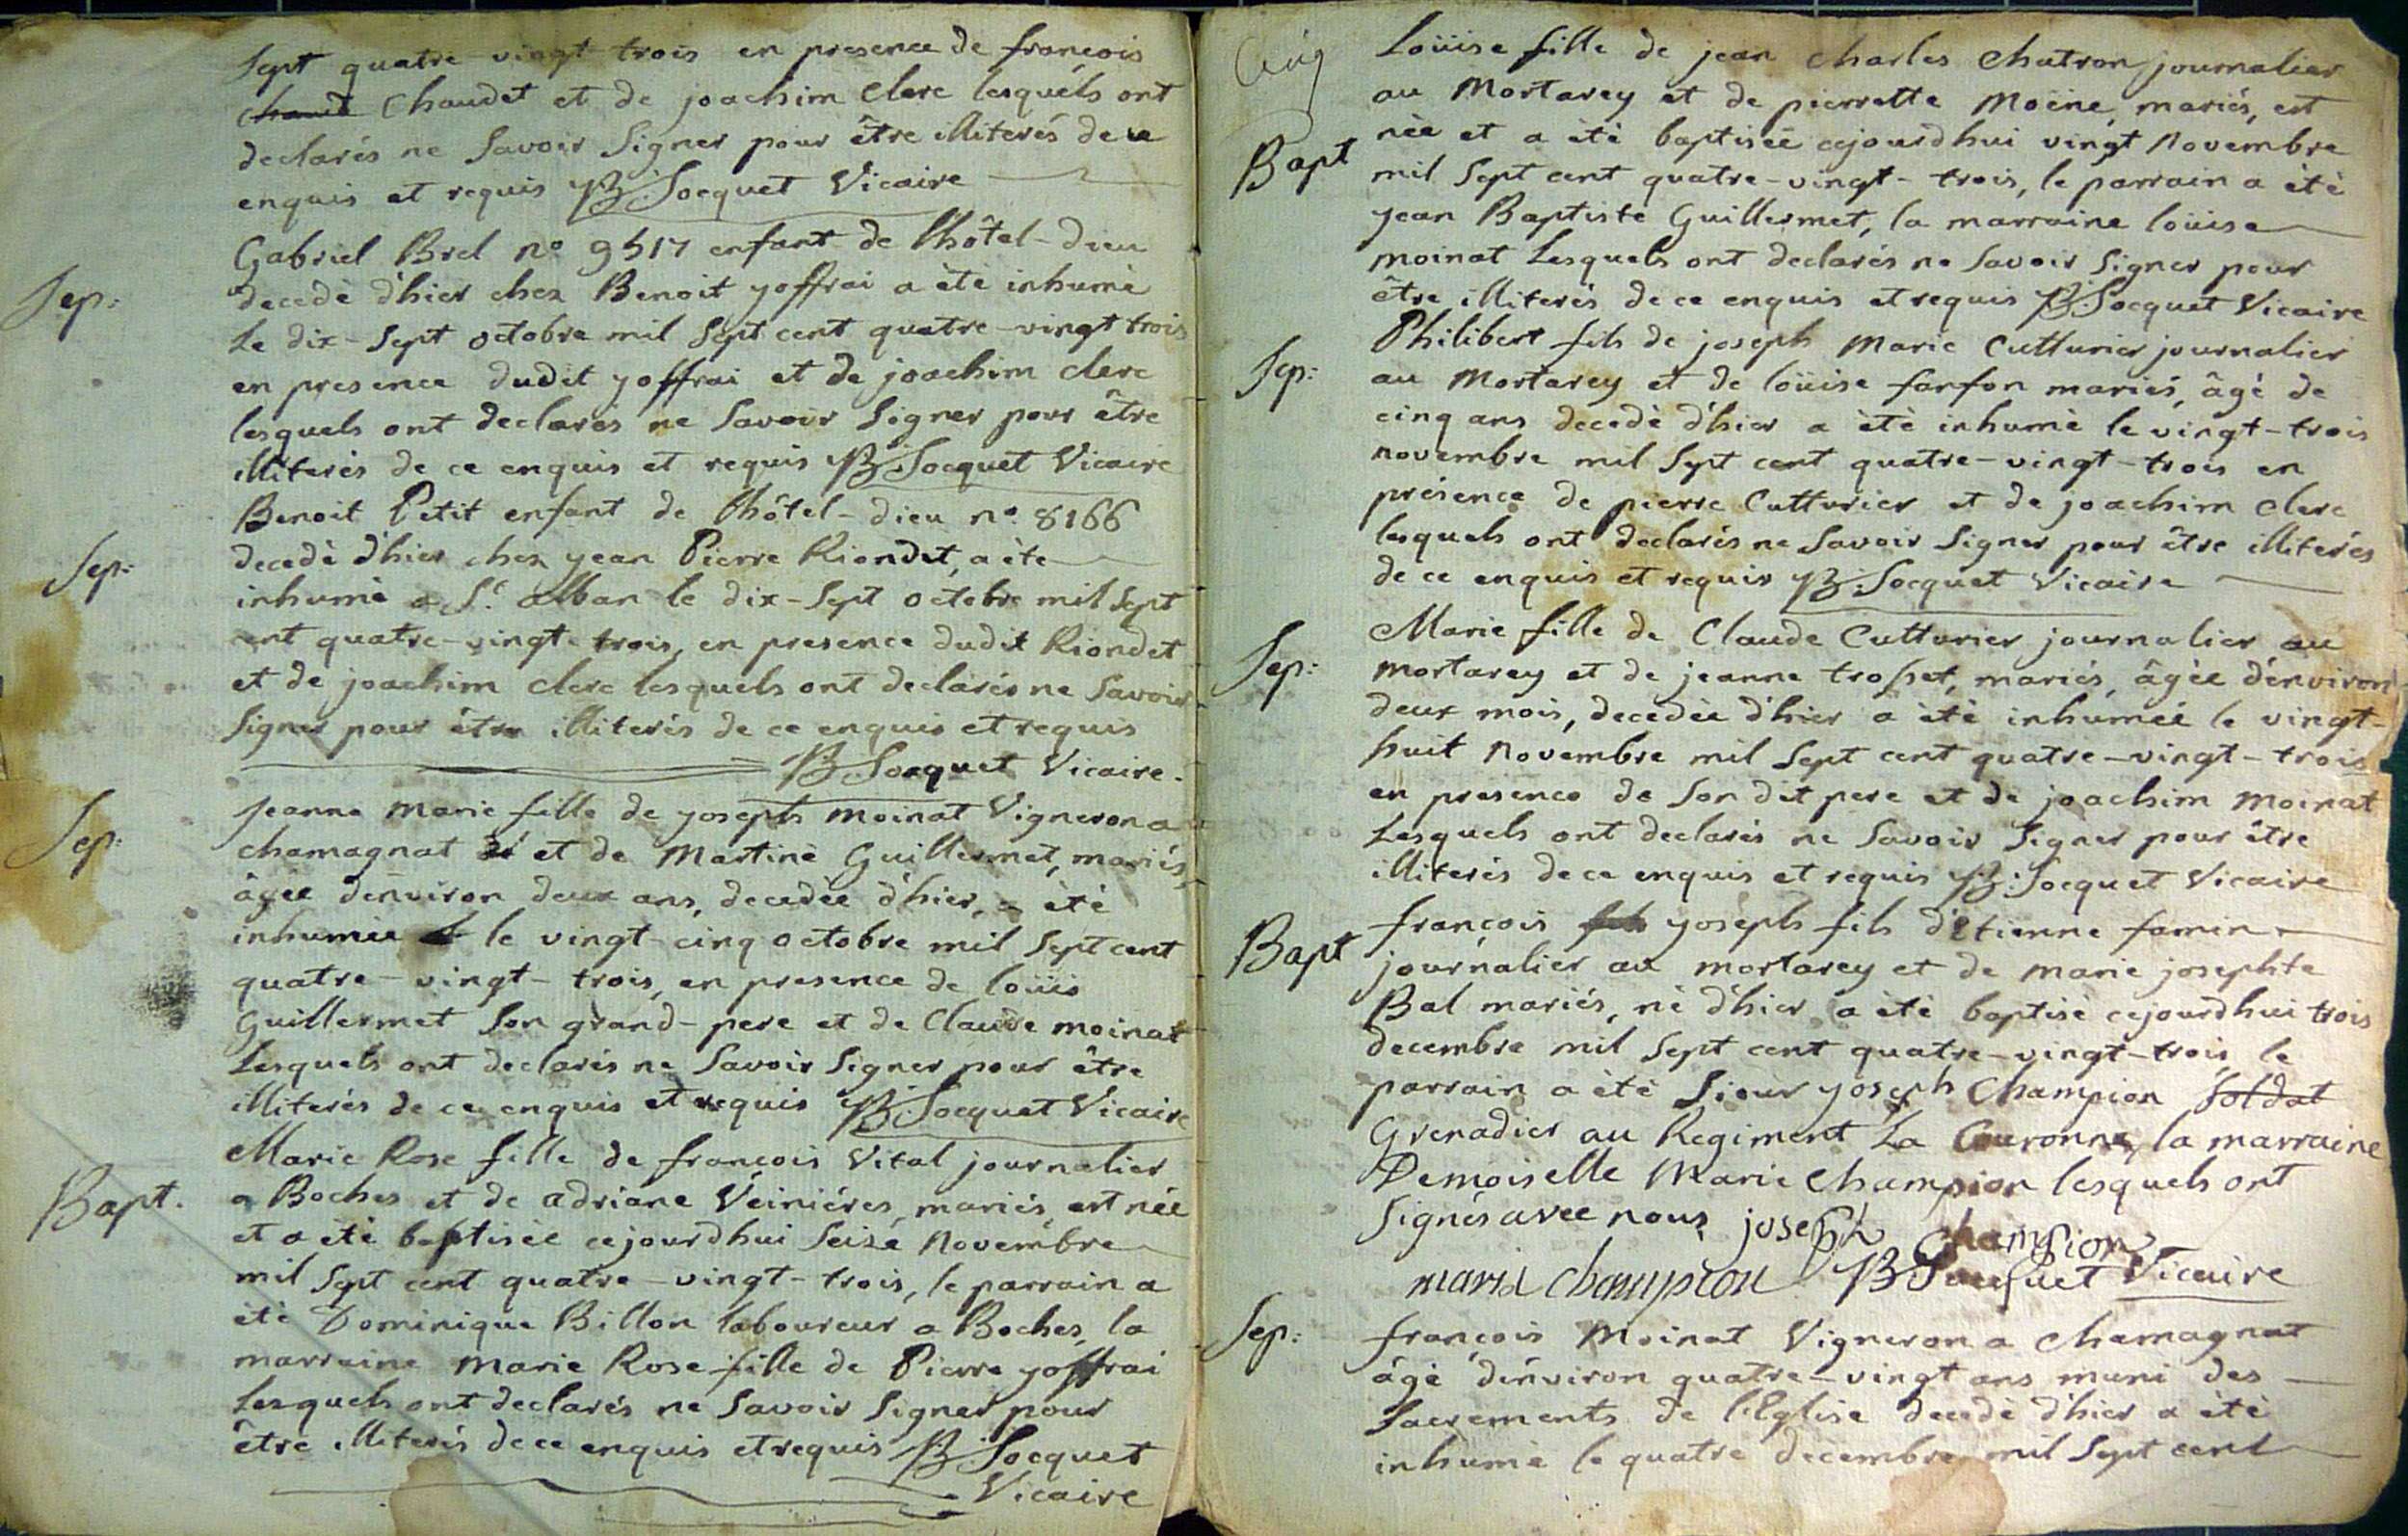 Sept quatre-vingt trois en presence de françois
chaud Chaudet et de joachim clerc lesquels ont
declarés ne Savoir Signer pour être illiterés de ce
enquis et requis B Socquet Vicaire
Sep:
Gabriel Brel no 9517 enfant de l'hôtel-dieu
decedè d'hier chez Benoit yoffrai a été inhumé
Le dix-Sept octobre mil Sept cent quatre-vingt trois
en presence dudit yoffrai et de joachim clerc
lesquels ont declarés ne Savoir Signer pour être
illiterés de ce enquis et requis B Socquet Vicaire
Sep:
Benoit Petit enfant de l'hôtel-dieu no. 8166
decedè d'hier chez yean Pierre Riondet, a éte
inhumé a St. alban le dix-Sept octobre mil Sept
cent quatre-vingt trois, en presence dudit Riondet
et de joachim clerc lesquels ont declarés ne Savoir
Signer pour être illiterés de ce enquis et requis
B Socquet Vicaire.
Sep:
Jeanne Marie fille de yoseph moinat Vigneron a
chamagnat et de Martine Guillermet, mariés,
âgée d'environ deux ans, decedée d'hier, a été
inhumée le vingt-cinq octobre mil Sept cent
quatre-vingt-trois, en presence de loüis
Guillermet Son grand-pere et de Claude moinat
Lesquels ont declarés ne Savoir Signer pour être
illiterés de ce enquis et requis B Socquet Vicaire
Bapt.
Marie Rose fille de françois Vital journalier
a Boches et de adriane Véiniéres, mariés, est née
et a été baptisée cejourdhui Seize Novembre
mil Sept cent quatre-vingt-trois, le parrain a
été Dominique Billon laboureur a Boches, la
marraine Marie Rose fille de Pierre yoffrai
Lesquels ont declarés ne Savoir Signer pour
être illiterés de ce enquis et requis B Socquet
Vicaire
Cinq
Bapt
Loüise fille de jean charles chatron journalier
au Mortarey et de pierrette Moine, mariés, est
née et a été baptisée cejourdhui vingt Novembre
mil Sept cent quatre-vingt-trois, le parrain a été
yean Baptiste Guillermet, la marraine loüise
moinat Lesquels ont declarés ne Savoir Signer pour
être illiterés de ce enquis et requis B Socquet Vicaire
Sep:
Philibert fils de joseph Marie Cutturier journalier
au Mortarey et de loüise farfon mariés, âgé de
cinq ans decedè d'hier a été inhumé le vingt-trois
novembre mil Sept cent quatre-vingt-trois en
présence de pierre Cutturier et de joachim clerc
lesquels ont declarés ne Savoir Signer pour être illiterés
de ce enquis et requis B Socquet Vicaire
Sep:
Marie fille de Claude Cutturier journalier au
mortarey et de jeanne trosset, mariés, âgée d'environ
deux mois, decedée d'hier a été inhumée le vingt-
huit Novembre mil Sept cent quatre-vingt-trois
en presence de Son dit pere et de joachim moinat
Lesquels ont declarés ne Savoir Signer pour être
illiterés de ce enquis et requis B Socquet Vicaire
Bapt
françois fils yoseph fils d'Etienne famin
journalier au mortarey et de marie josephte
Bal mariés, né d'hier a été baptisé cejourdhui trois
decembre mil Sept cent quatre-vingt-trois, le
parrain a été Sieur yoseph Champion Soldat
Grenadier au Regiment La Couronne, la marraine
Demoiselle Marie Champion lesquels ont
Signés avec nous joseph Champion
marie champion B Socquet Vicaire
Sep:
françois Moinat Vigneron a chamagnat
âgé d'environ quatre-vingt ans muni des
Sacrements de l'Eglise decedè d'hier a été
inhumé le quatre decembre mil Sept cent